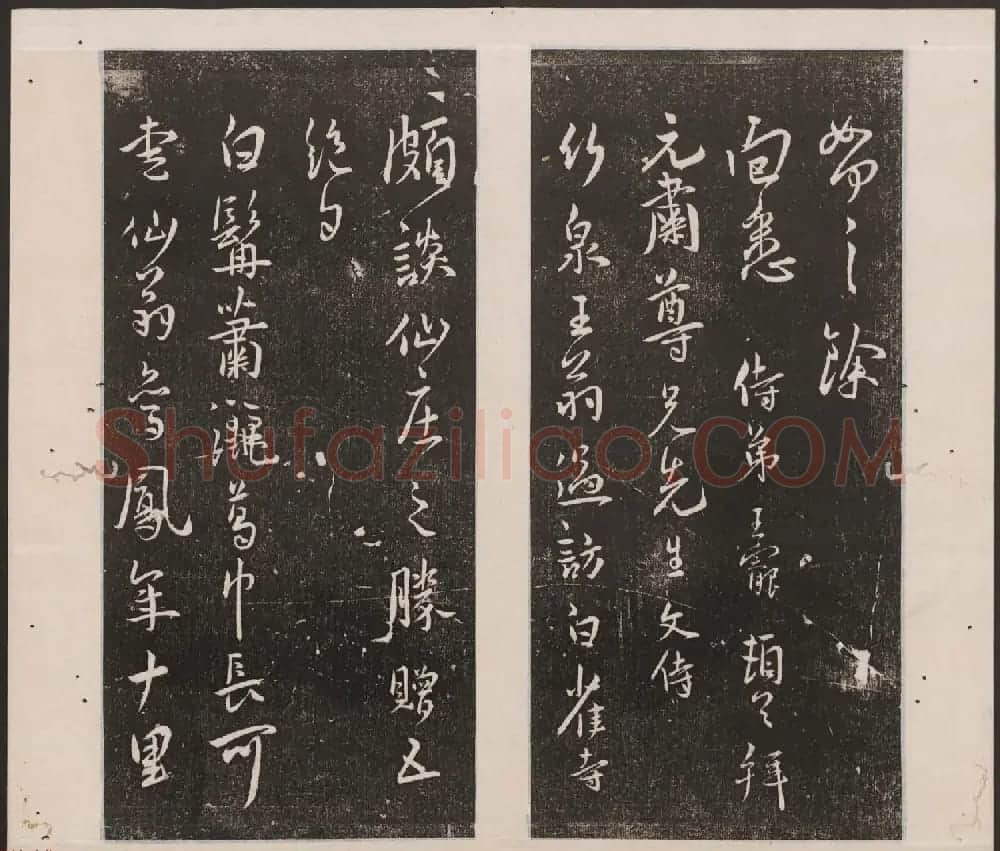 如之餘
面悉 侍弟王寵頓首拜
元肅尊兄先生文侍
竹泉王翁過訪白雀寺
頗談仙庄之勝贈五
絕句
白髯蕭灑葛巾長可
是仙翁烏鳳年十里
Shufaziliao.COM